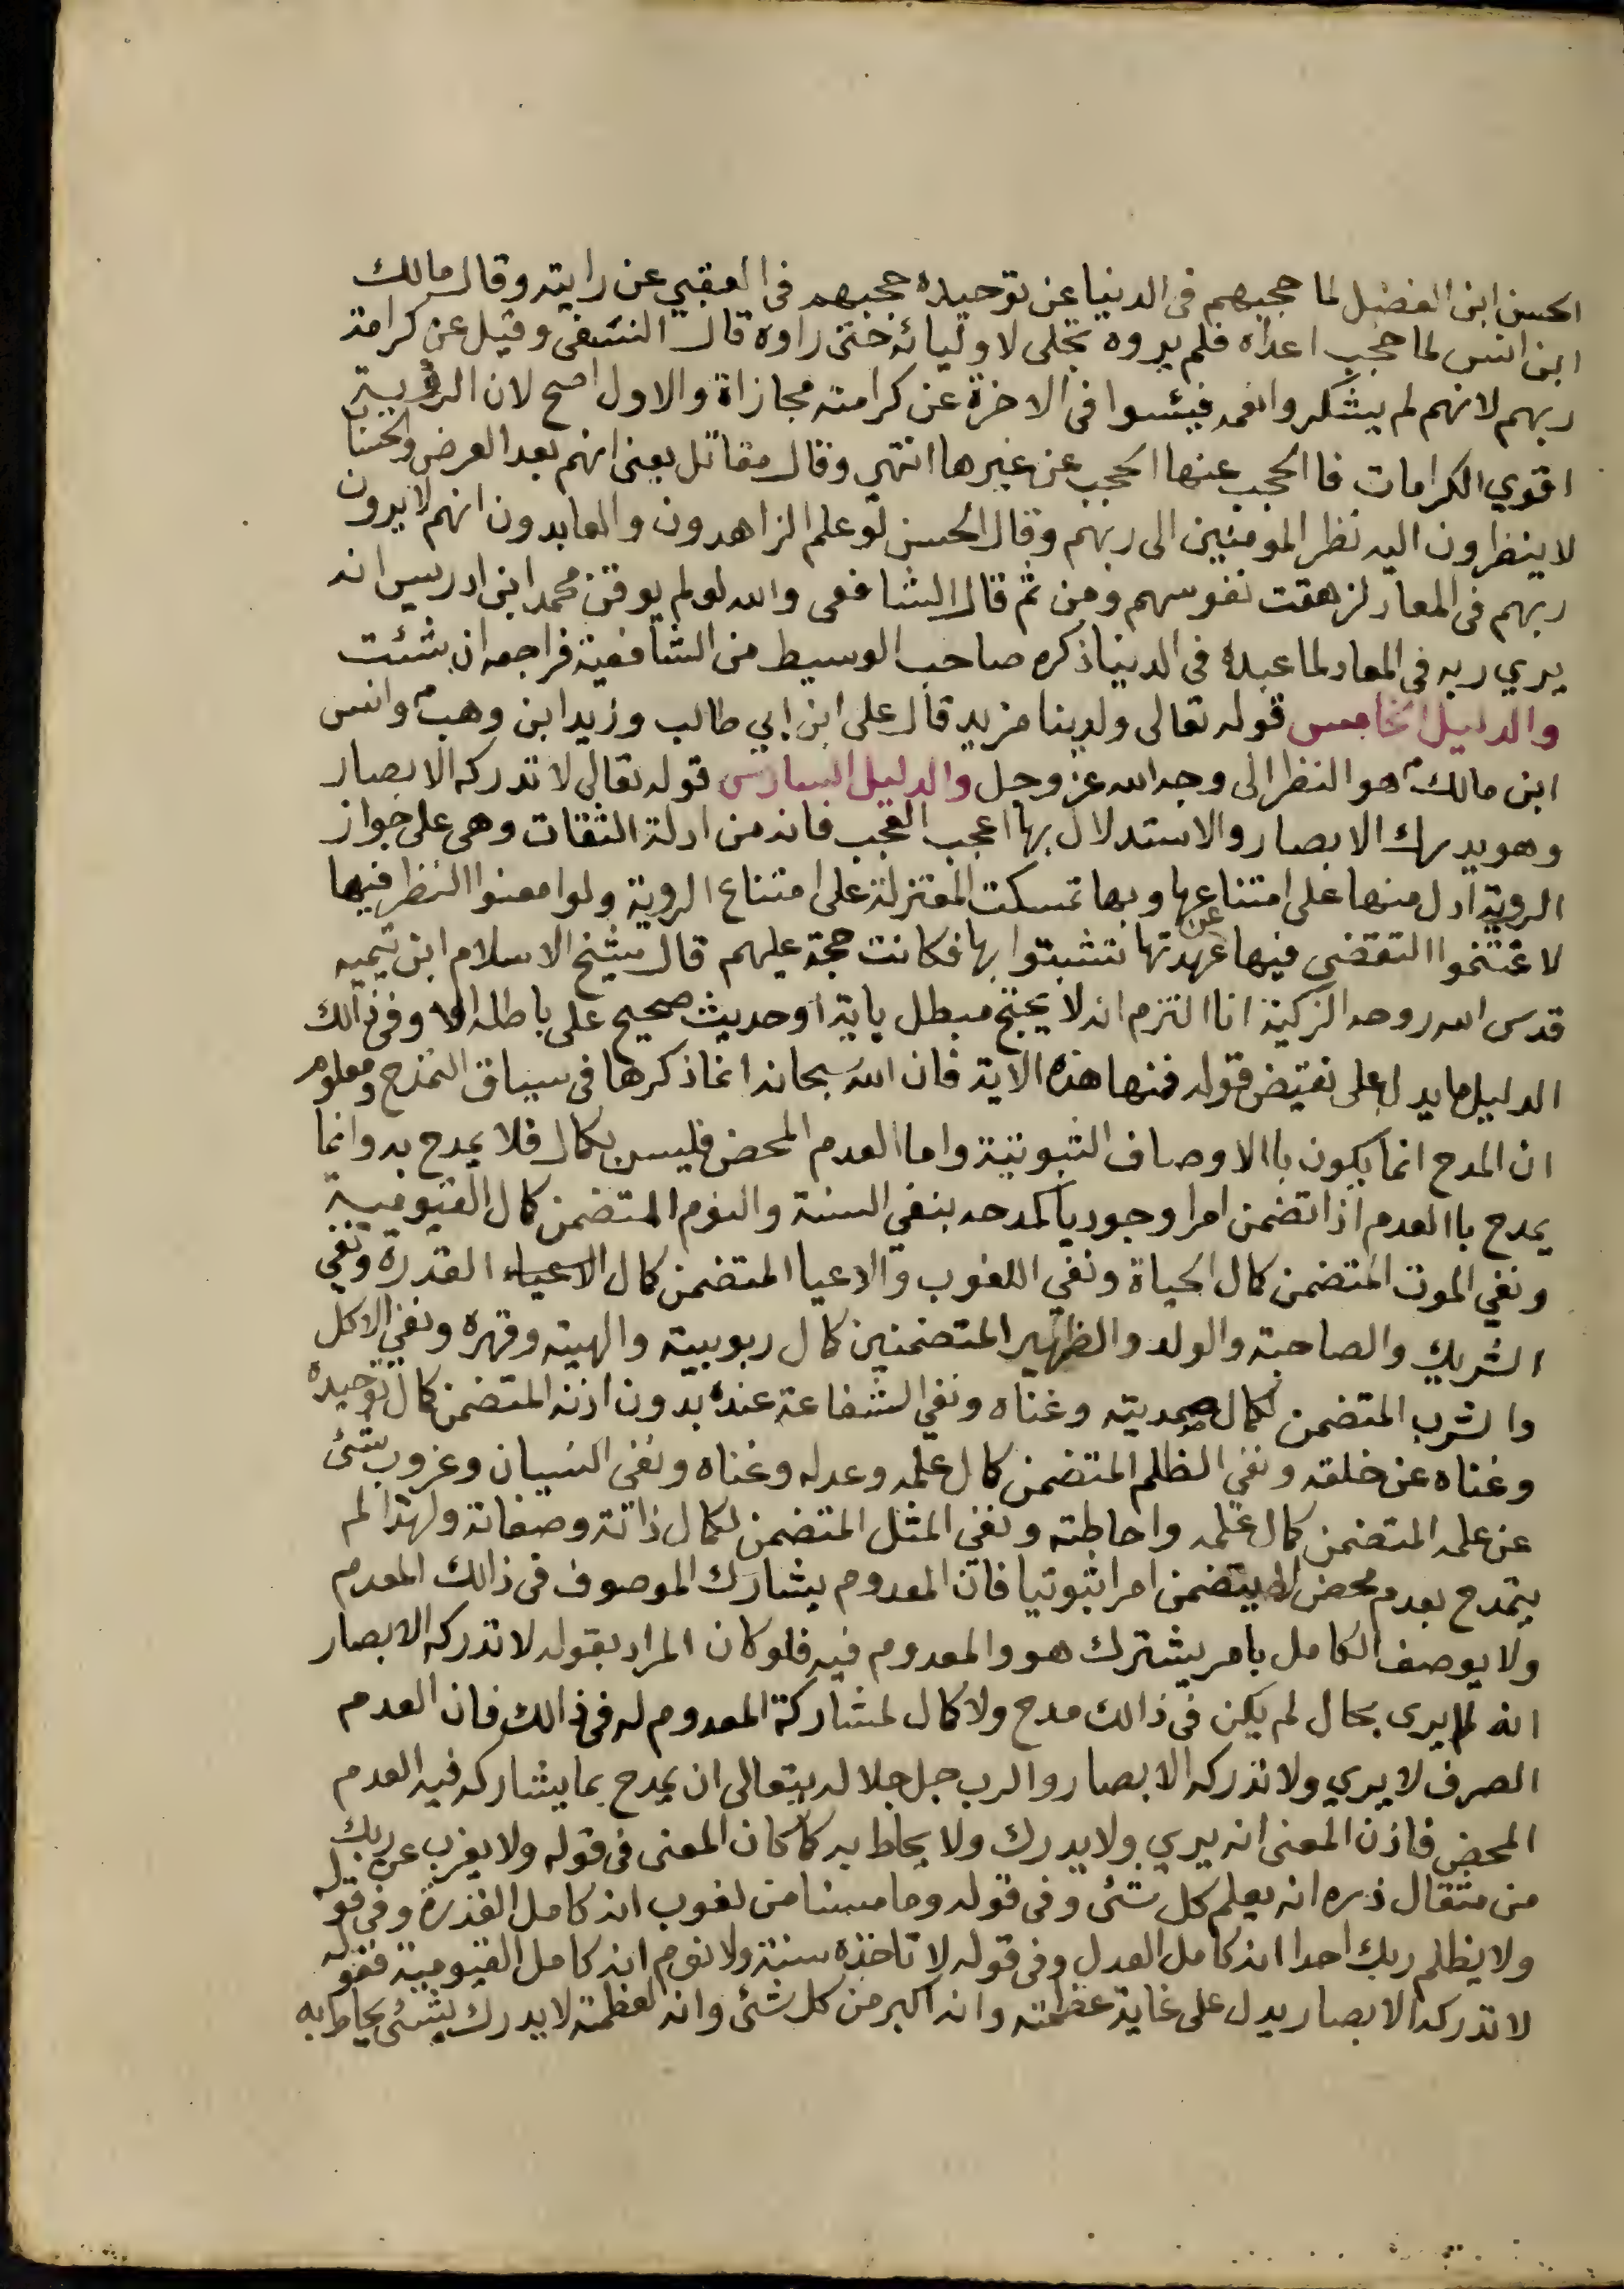 الحسن ابن الفضيل لما حجبهم في الدنيا عن توحيده حجبهم في العقبي عن رايته وقال مالك
ابن انس لما حجب اعداه فلم يروه تجلى لاوليائه حتى راوه قال النسفي وقيل عن كرامة
ربهم لانهم لم يشكروا نعمه فيئسوا في الاخرة عن كرامته مجازاة والاول اصح لان الرؤية
اقوي الكرامات فا الحجب عنها الحجب عن غيرها انتهى وقال مقاتل يعنى انهم بعد العرض والحساب
لا ينظرون اليه نظر المومنين الى ربهم وقال الحسن لو علم الزاهدون والعابدون انهم لا يرون
ربهم في المعاد لزهقت نفوسهم ومن ثم قال الشافعى والله لو لم يوقن محمد ابن ادريس انه
يري ربه في المعاد لما عبده في الدنيا ذكره صاحب الوسيط من الشافعية فراجعه ان شئت
والدليل الخامس قوله تعالى ولدينا مزيد قال على ابن ابي طالب وزيد ابن وهب وانس
ابن مالك هو النظر الى وجه الله عز وجل والدليل السادس قوله تعالى لا تدركه الابصار
وهو يدرك الابصار والاستدلال بها اعجب العجب فانه من ادلة الثقات وهى على جواز
الروية ادل منها على امتناعها وبها تمسكت المعتزلة على امتناع الروية ولو امعنوا النظر فيها
لاغتنموا التقضي فيها عن عهدتها نتشبتوا بها فكانت حجة عليهم قال شيخ الاسلام ابن تيميه
قدس الله روحه الزكية انا التزم انه لا يحتج مبطل باية او حديث صحيح على باطله الا وفى ذالك
الدليل ما يدل على نقيض قوله فمنها هذه الاية فان الله سبحانه انما ذكرها في سياق التمدح ومعلوم
ان المدح انما يكون باالاوصاف الثبوتية واما العدم المحض فليس بكمال فلا يمدح به وانما
يمدح باالعدم اذا تضمن امرا وجوديا كمدحه بنفي السنة والنوم المتضمن كمال القيومية
ونفي الموت المتضمن كمال الحياة ونفي اللغوب والاعيا المتضمن كمال الاعياء القدرة ونفي
الشريك والصاحبة والولد والظهير المتضمنين كمال ربوبيته والهيته وقهره ونفي الاكل
والشرب المتضمن لكمال صمديته وغناه ونفي الشفاعة عنده بدون اذنه المتضمن كمال توحيده
وغناه عن خلقه ونفي الظلم المتضمن كمال علمه وعدله وغناه ونفى النسيان وعزوب شئ
عن علمه المتضمن كمال علمه واحاطته ونفى المثل المتضمن لكمال ذاتة وصفاتة ولهذا لم
يتمدح بعدم محض لا يتضمن امرا ثبوتيا فان المعدوم يشارك الموصوف في ذالك المعدم
ولا يوصف الكامل بامر يشترك هو والمعدوم فيه فلو كان المراد بقوله لا تدركه الابصار
انه لا يرى بحال لم يكن في ذالك مدح ولا كمال لمشاركة المعدوم له في ذالك فان العدم
الصرف لا يري ولا تدركه الابصار والرب جل جلاله يتعالى ان يمدح بما يشاركه فيه العدم
المحض فاذن المعنى انه يري ولا يدرك ولا يحاط به كما كان المعنى في قوله ولا يعزب عن ربك
من مثقال ذره انه يعلم كل شئ وفى قوله وما مسنا من لغوب انه كامل القدرة وفى قوله
ولا يظلم ربك احدا انه كامل العدل وفى قوله لا تاخذه سنة ولا نوم انه كامل القيومية فقوله
لا تدركه الابصار يدل على غاية عظمته وانه اكبر من كل شئ وانه لعظمته لا يدرك بشئ يحاط به